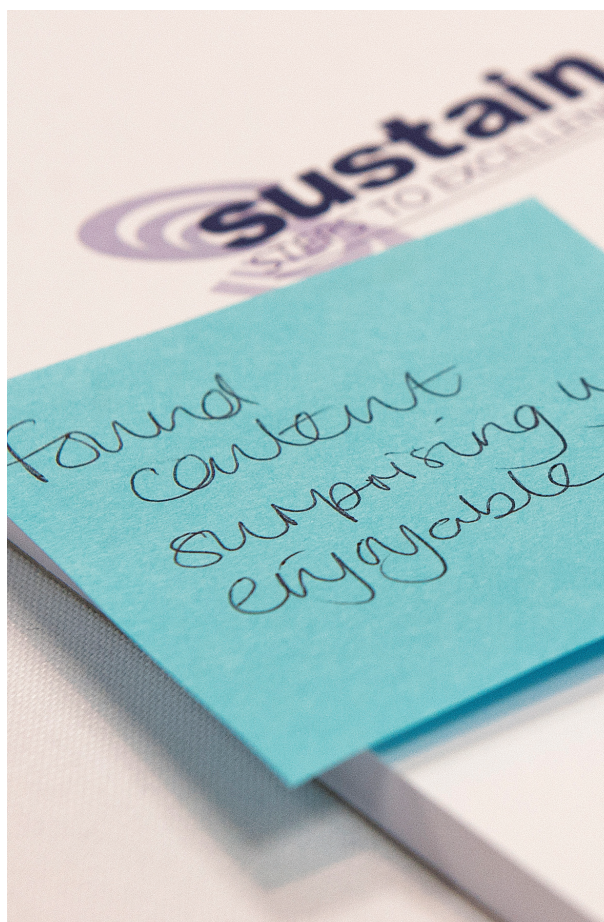 sustain
STEPS TO EXCELLEN
found
content
surprising
enjoyable